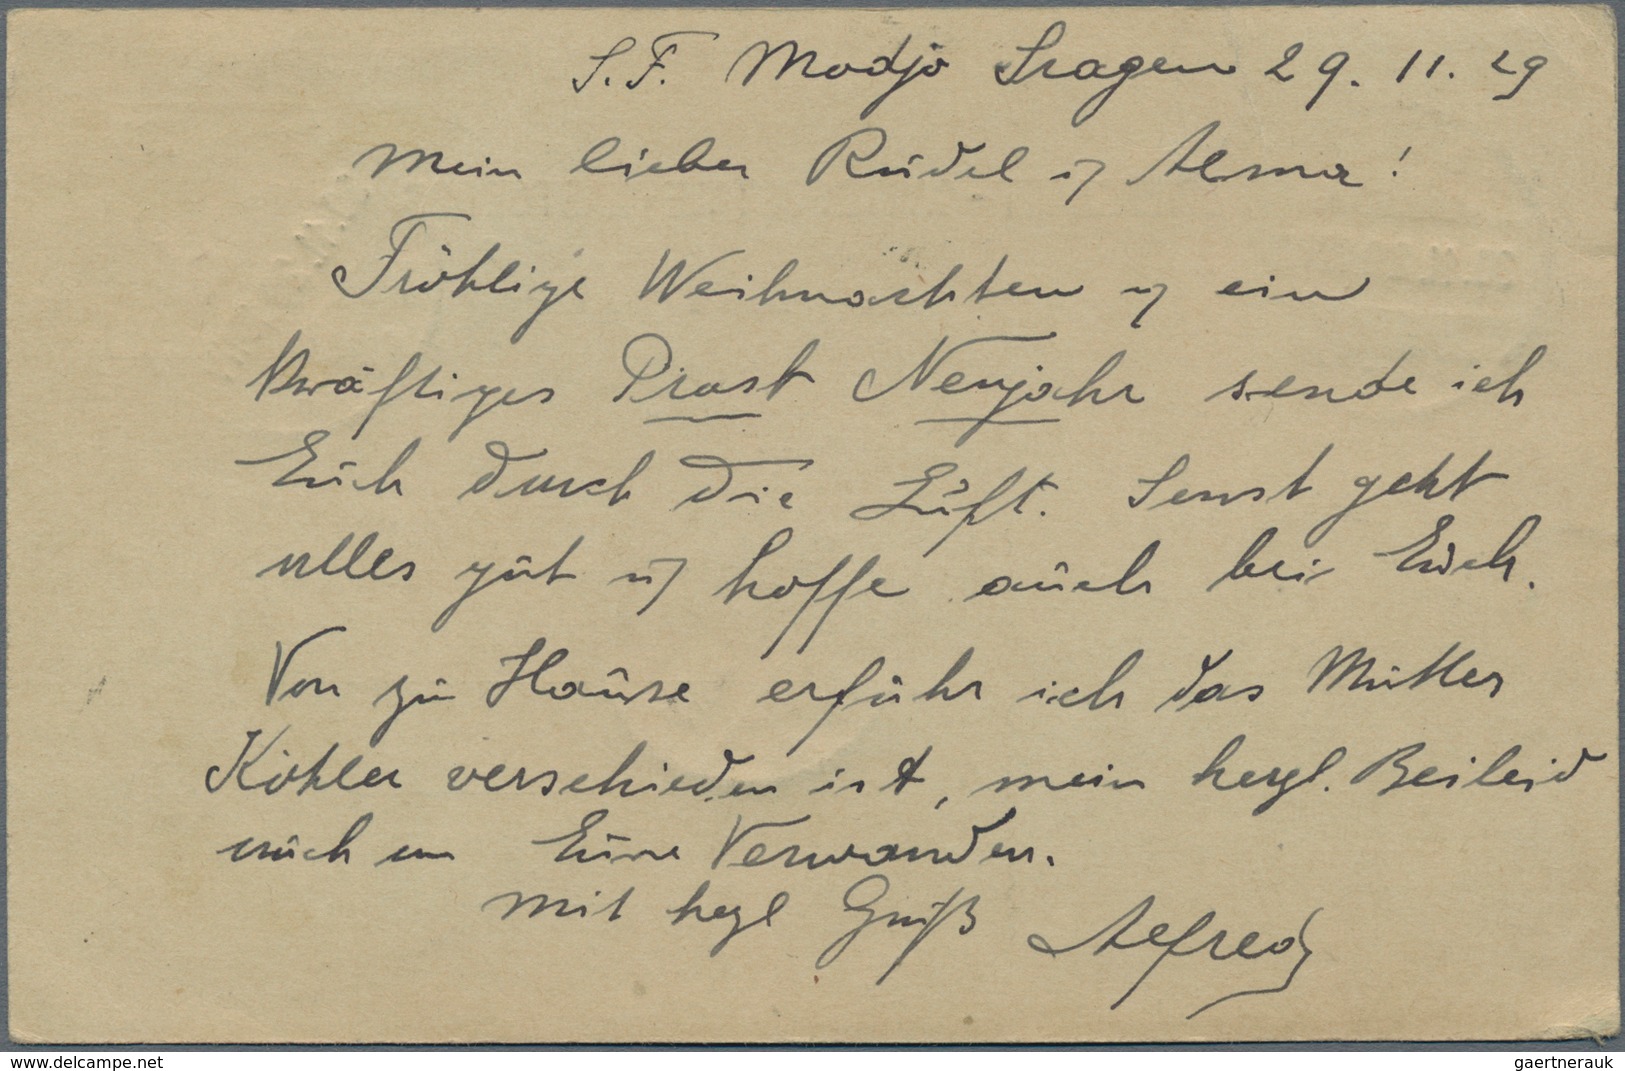 S.F. Modjo Sragen 29. 11. 29
Mein lieber Rudel u Alma!
Fröhlige Weihnachten u ein
kräftiges Prost Neujahr sende ich
Euch durch die Luft. Sonst geht
alles gut u hoffe auch bei Euch.
Von zu Hause erfuhr ich das Mutter
Köhler verschieden ist, mein herzl. Beileid
auch an Eure Verwanden.
Mit hezl Gruß Alfred
www.delcampe.net
gaertnerauk